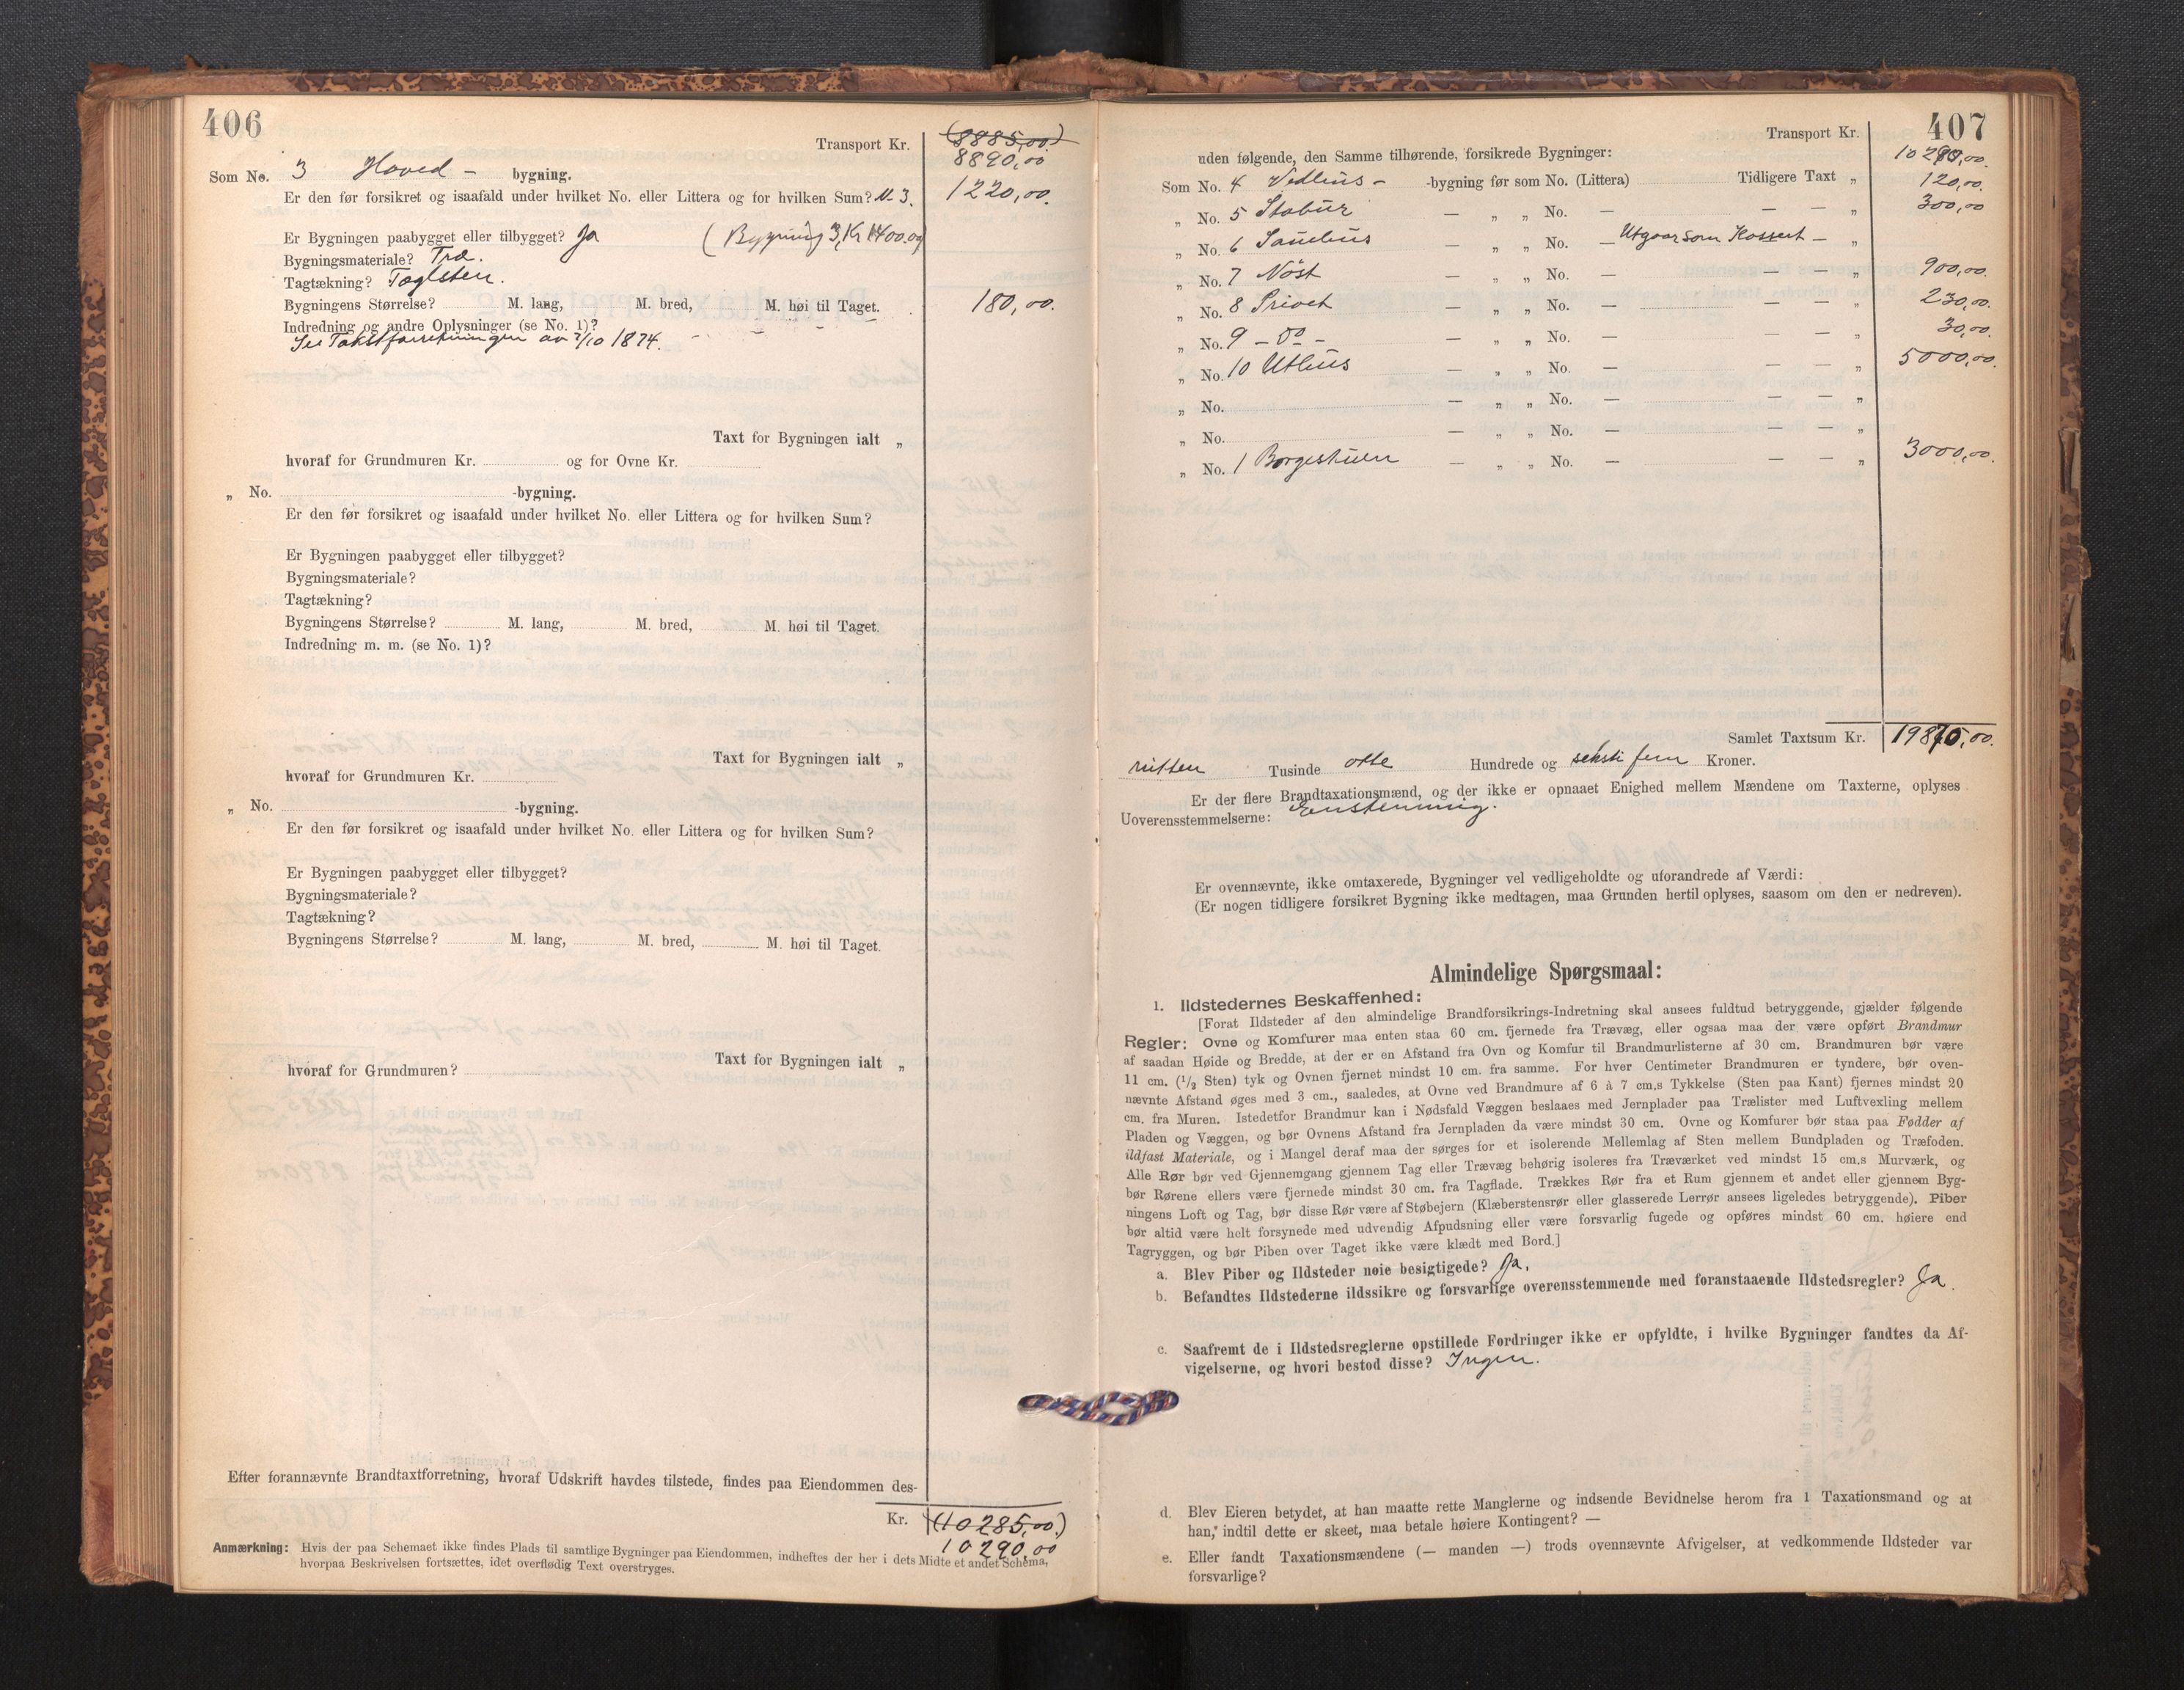 406
Transport Kr. (8885,00)
8890,00
Som No. 3 Hoved - bygning.
Er den før forsikret og isaafald under hvilket No. eller Littera og for hvilken Sum? N. 3. 1220,00.
Er Bygningen paabygget eller tilbygget? Ja (Bygning 3, Kr 1400.00)
Bygningsmateriale? Træ.
Tagtækning? Taglsten.
Bygningens Størrelse? M. lang, M. bred, M. høi til Taget. 180,00.
Indredning og andre Oplysninger (se No. 1)?
See Takstforretningen av 2/10 1874.
Taxt for Bygningen ialt „
hvoraf for Grundmuren Kr. og for Ovne Kr.
„ No. -bygning.
Er den før forsikret og isaafald under hvilket No. eller Littera og for hvilken Sum?
Er Bygningen paabygget eller tilbygget?
Bygningsmateriale?
Tagtækning?
Bygningens Størrelse? M. lang, M. bred, M. høi til Taget.
Indredning m. m. (se No. 1)?
Taxt for Bygningen ialt „
hvoraf for Grundmuren Kr.
„ No. -bygning.
Er den før forsikret og isaafald under hvilket No. eller Littera og for hvilken Sum?
Er Bygningen paabygget eller tilbygget?
Bygningsmateriale?
Tagtækning?
Bygningens Størrelse? M. lang, M. bred, M. høi til Taget.
Taxt for Bygningen ialt „
hvoraf for Grundmuren?
Efter forannævnte Brandtaxtforretning, hvoraf Udskrift havdes tilstede, findes paa Eiendommen des-
Kr. (10285,00)
10290,00
Anmærkning: Hvis der paa Schemaet ikke findes Plads til samtlige Bygninger paa Eiendommen, indheftes der her i dets Midte et andet Schema,
hvorpaa Beskrivelsen fortsættes, idet overflødig Text overstryges.
407
Transport Kr.
uden følgende, den Samme tilhørende, forsikrede Bygninger: 10290,00.
Som No. 4 Vedhus - -bygning før som No. (Littera) Tidligere Taxt „ 120,00.
„ No. 5 Stabur — „ „ No. — — — „ 300,00
„ No. 6 Sauehus — „ „ No. — Utgaar som Kassert — „
„ No. 7 Nöst — „ „ No. — — — „ 900,00.
„ No. 8 Privet — „ „ No. — — — „ 230,00.
„ No. 9 - do - — „ „ No. — — „ 30,00.
„ No. 10 Uthus — „ „ No. — — — „ 5000,00.
„ No. — „ „ No. — — — „
„ No. — „ „ No. — — — „
„ No. 1 Borgestuen — „ „ No. — — — „ 3000,00.
Samlet Taxtsum Kr. 19870,00.
nitten Tusinde otte Hundrede og seksti fem Kroner.
Er der flere Brandtaxationsmænd, og der ikke er opnaaet Enighed mellem Mændene om Taxterne, oplyses
Uoverensstemmelserne: Enstemmig.
Er ovennævnte, ikke omtaxerede, Bygninger vel vedligeholdte og uforandrede af Værdi:
(Er nogen tidligere forsikret Bygning ikke medtagen, maa Grunden hertil oplyses, saasom om den er nedreven).
Almindelige Spørgsmaal:
1. Ildstedernes Beskaffenhed:
[Forat Ildsteder af den almindelige Brandforsikrings-Indretning skal ansees fuldtud betryggende, gjælder følgende
Regler: Ovne og Komfurer maa enten staa 60 cm. fjernede fra Trævæg, eller ogsaa maa der være opført Brandmur
af saadan Høide og Bredde, at der er en Afstand fra Ovn og Komfur til Brandmurlisterne af 30 cm. Brandmuren bør være
11 cm. (1/2 Sten) tyk og Ovnen fjernet mindst 10 cm. fra samme. For hver Centimeter Brandmuren er tyndere, bør oven-
nævnte Afstand øges med 3 cm., saaledes, at Ovne ved Brandmure af 6 à 7 cm.s Tykkelse (Sten paa Kant) fjernes mindst 20
cm. fra Muren. Istedetfor Brandmur kan i Nødsfald Væggen beslaaes med Jernplader paa Trælister med Luftvexling mellem
Pladen og Væggen, og bør Ovnens Afstand fra Jernpladen da være mindst 30 cm. Ovne og Komfurer bør staa paa Fødder af
ildfast Materiale, og i Mangel deraf maa der sørges for et isolerende Mellemlag af Sten mellem Bundpladen og Træfoden.
Alle Rør bør ved Gjennemgang gjennem Tag eller Trævæg behørig isoleres fra Træværket ved mindst 15 cm.s Murværk, og
bør Rørene ellers være fjernede mindst 30 cm. fra Tagflade. Trækkes Rør fra et Rum gjennem et andet eller gjennem Byg-
ningens Loft og Tag, bør disse Rør være af Støbejern (Klæberstensrør eller glasserede Lerrør ansees ligeledes betryggende). Piber
bør altid være helt forsynede med udvendig Afpudsning eller være forsvarlig fugede og opføres mindst 60 cm. høiere end
Tagryggen, og bør Piben over Taget ikke være klædt med Bord.]
a. Blev Piber og Ildsteder nøie besigtigede? Ja.
b. Befandtes Ildstederne ildssikre og forsvarlige overensstemmende med foranstaaende Ildstedsregler? Ja.
c. Saafremt de i Ildstedsreglerne opstillede Fordringer ikke er opfyldte, i hvilke Bygninger fandtes da Af-
vigelserne, og hvori bestod disse? Ingen.
d. Blev Eieren betydet, at han maatte rette Manglerne og indsende Bevidnelse herom fra 1 Taxationsmand og at
han, indtil dette er skeet, maa betale høiere Kontingent? —
e. Eller fandt Taxationsmændene (— manden —) trods ovennævnte Afvigelser, at vedkommende Ildsteder var
forsvarlige?